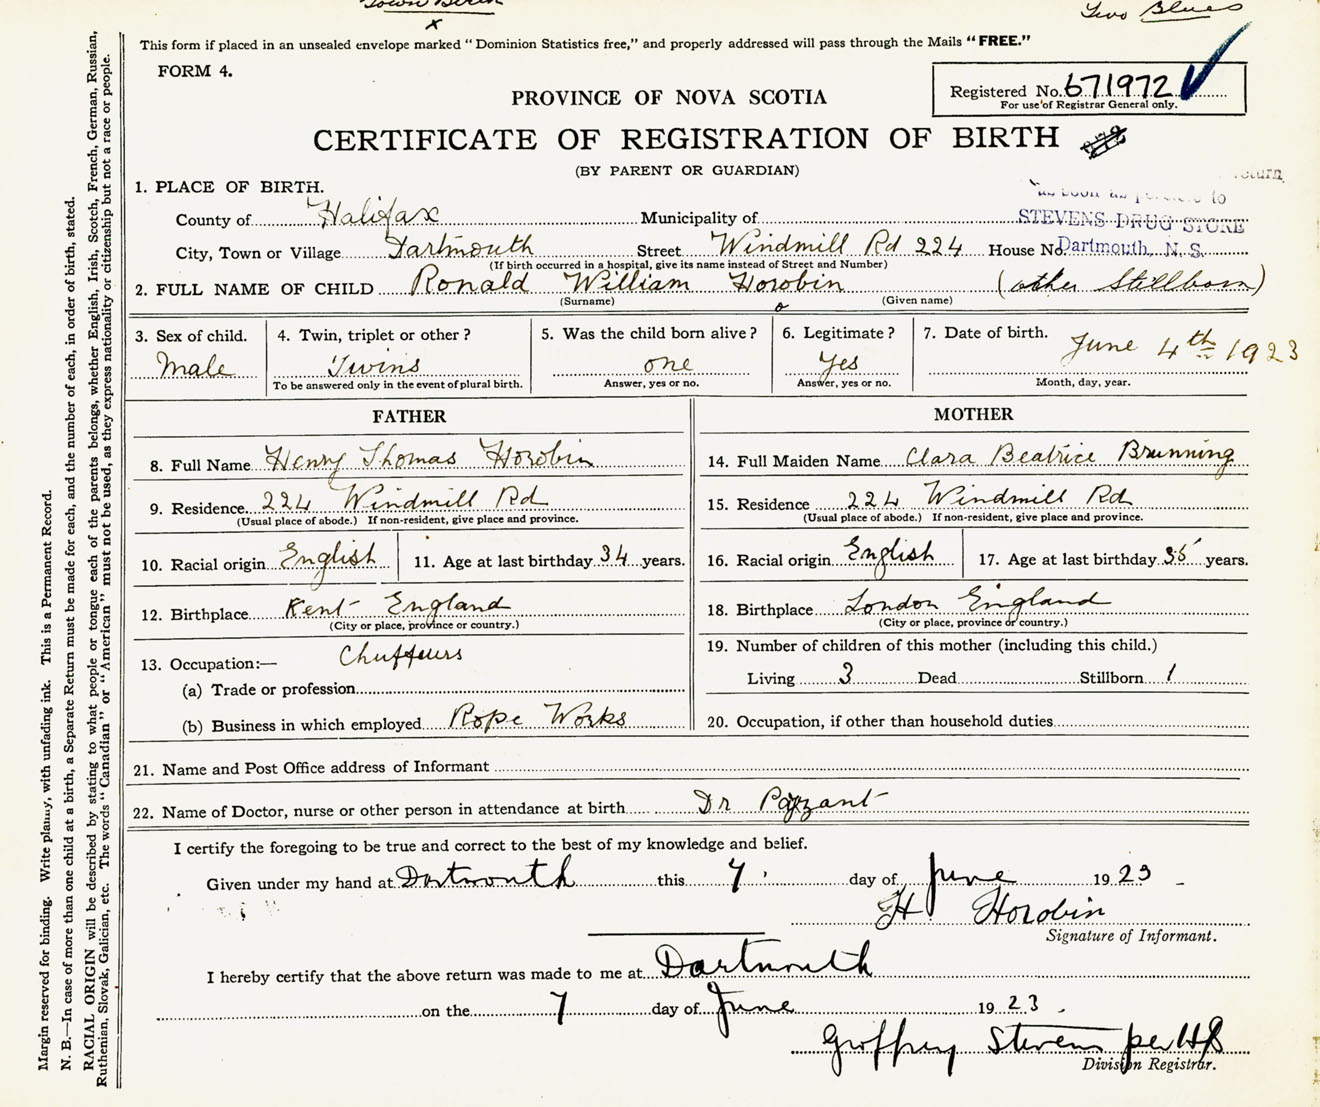 Town Birth
x
Two Blues
This form if placed in an unsealed envelope marked "Dominion Statistics free," and properly addressed will pass through the Mails "FREE."
FORM 4.
Registered No. 671972
For use of Registrar General only.
PROVINCE OF NOVA SCOTIA
CERTIFICATE OF REGISTRATION OF BIRTH
(BY PARENT OR GUARDIAN)
return
as soon as possible to
STEVENS DRUG STORE
Dartmouth, N. S.
1. PLACE OF BIRTH.
County of Halifax Municipality of
City, Town or Village Dartmouth Street Windmill Rd 224 House No.
(If birth occurred in a hospital, give its name instead of Street and Number)
2. FULL NAME OF CHILD Ronald William Horobin (other Stillborn)
(Surname) o (Given name)
3. Sex of child. Male
4. Twin, triplet or other? Twins
To be answered only in the event of plural birth.
5. Was the child born alive? one
Answer, yes or no.
6. Legitimate? Yes
Answer, yes or no.
7. Date of birth. June 4th 1923
Month, day, year.
FATHER
8. Full Name Henry Thomas Horobin
9. Residence. 224 Windmill Rd
(Usual place of abode.) If non-resident, give place and province.
10. Racial origin English 11. Age at last birthday 34 years.
12. Birthplace Kent England
(City or place, province or country.)
13. Occupation:— Chuffeurs
(a) Trade or profession
(b) Business in which employed Rope Works
MOTHER
14. Full Maiden Name Clara Beatrice Brunning
15. Residence 224 Windmill Rd
(Usual place of abode.) If non-resident, give place and province.
16. Racial origin English 17. Age at last birthday 35 years.
18. Birthplace London England
(City or place, province or country.)
19. Number of children of this mother (including this child.)
Living 3 Dead Stillborn 1
20. Occupation, if other than household duties
21. Name and Post Office address of Informant
22. Name of Doctor, nurse or other person in attendance at birth Dr Payzant
I certify the foregoing to be true and correct to the best of my knowledge and belief.
Given under my hand at Dartmouth this 7 day of June 1923
H. Horobin
Signature of Informant.
I hereby certify that the above return was made to me at Dartmouth
on the 7 day of June 1923.
Geoffrey Stevens per HB
Division Registrar.
Margin reserved for binding. Write plainly, with unfading ink. This is a Permanent Record.
N. B.—In case of more than one child at a birth, a Separate Return must be made for each, and the number of each, in order of birth, stated.
RACIAL ORIGIN will be described by stating to what people or tongue each of the parents belongs, whether English, Irish, Scotch, French, German, Russian,
Ruthenian, Slovak, Galician, etc. The words "Canadian" or "American" must not be used, as they express nationality or citizenship but not a race or people.